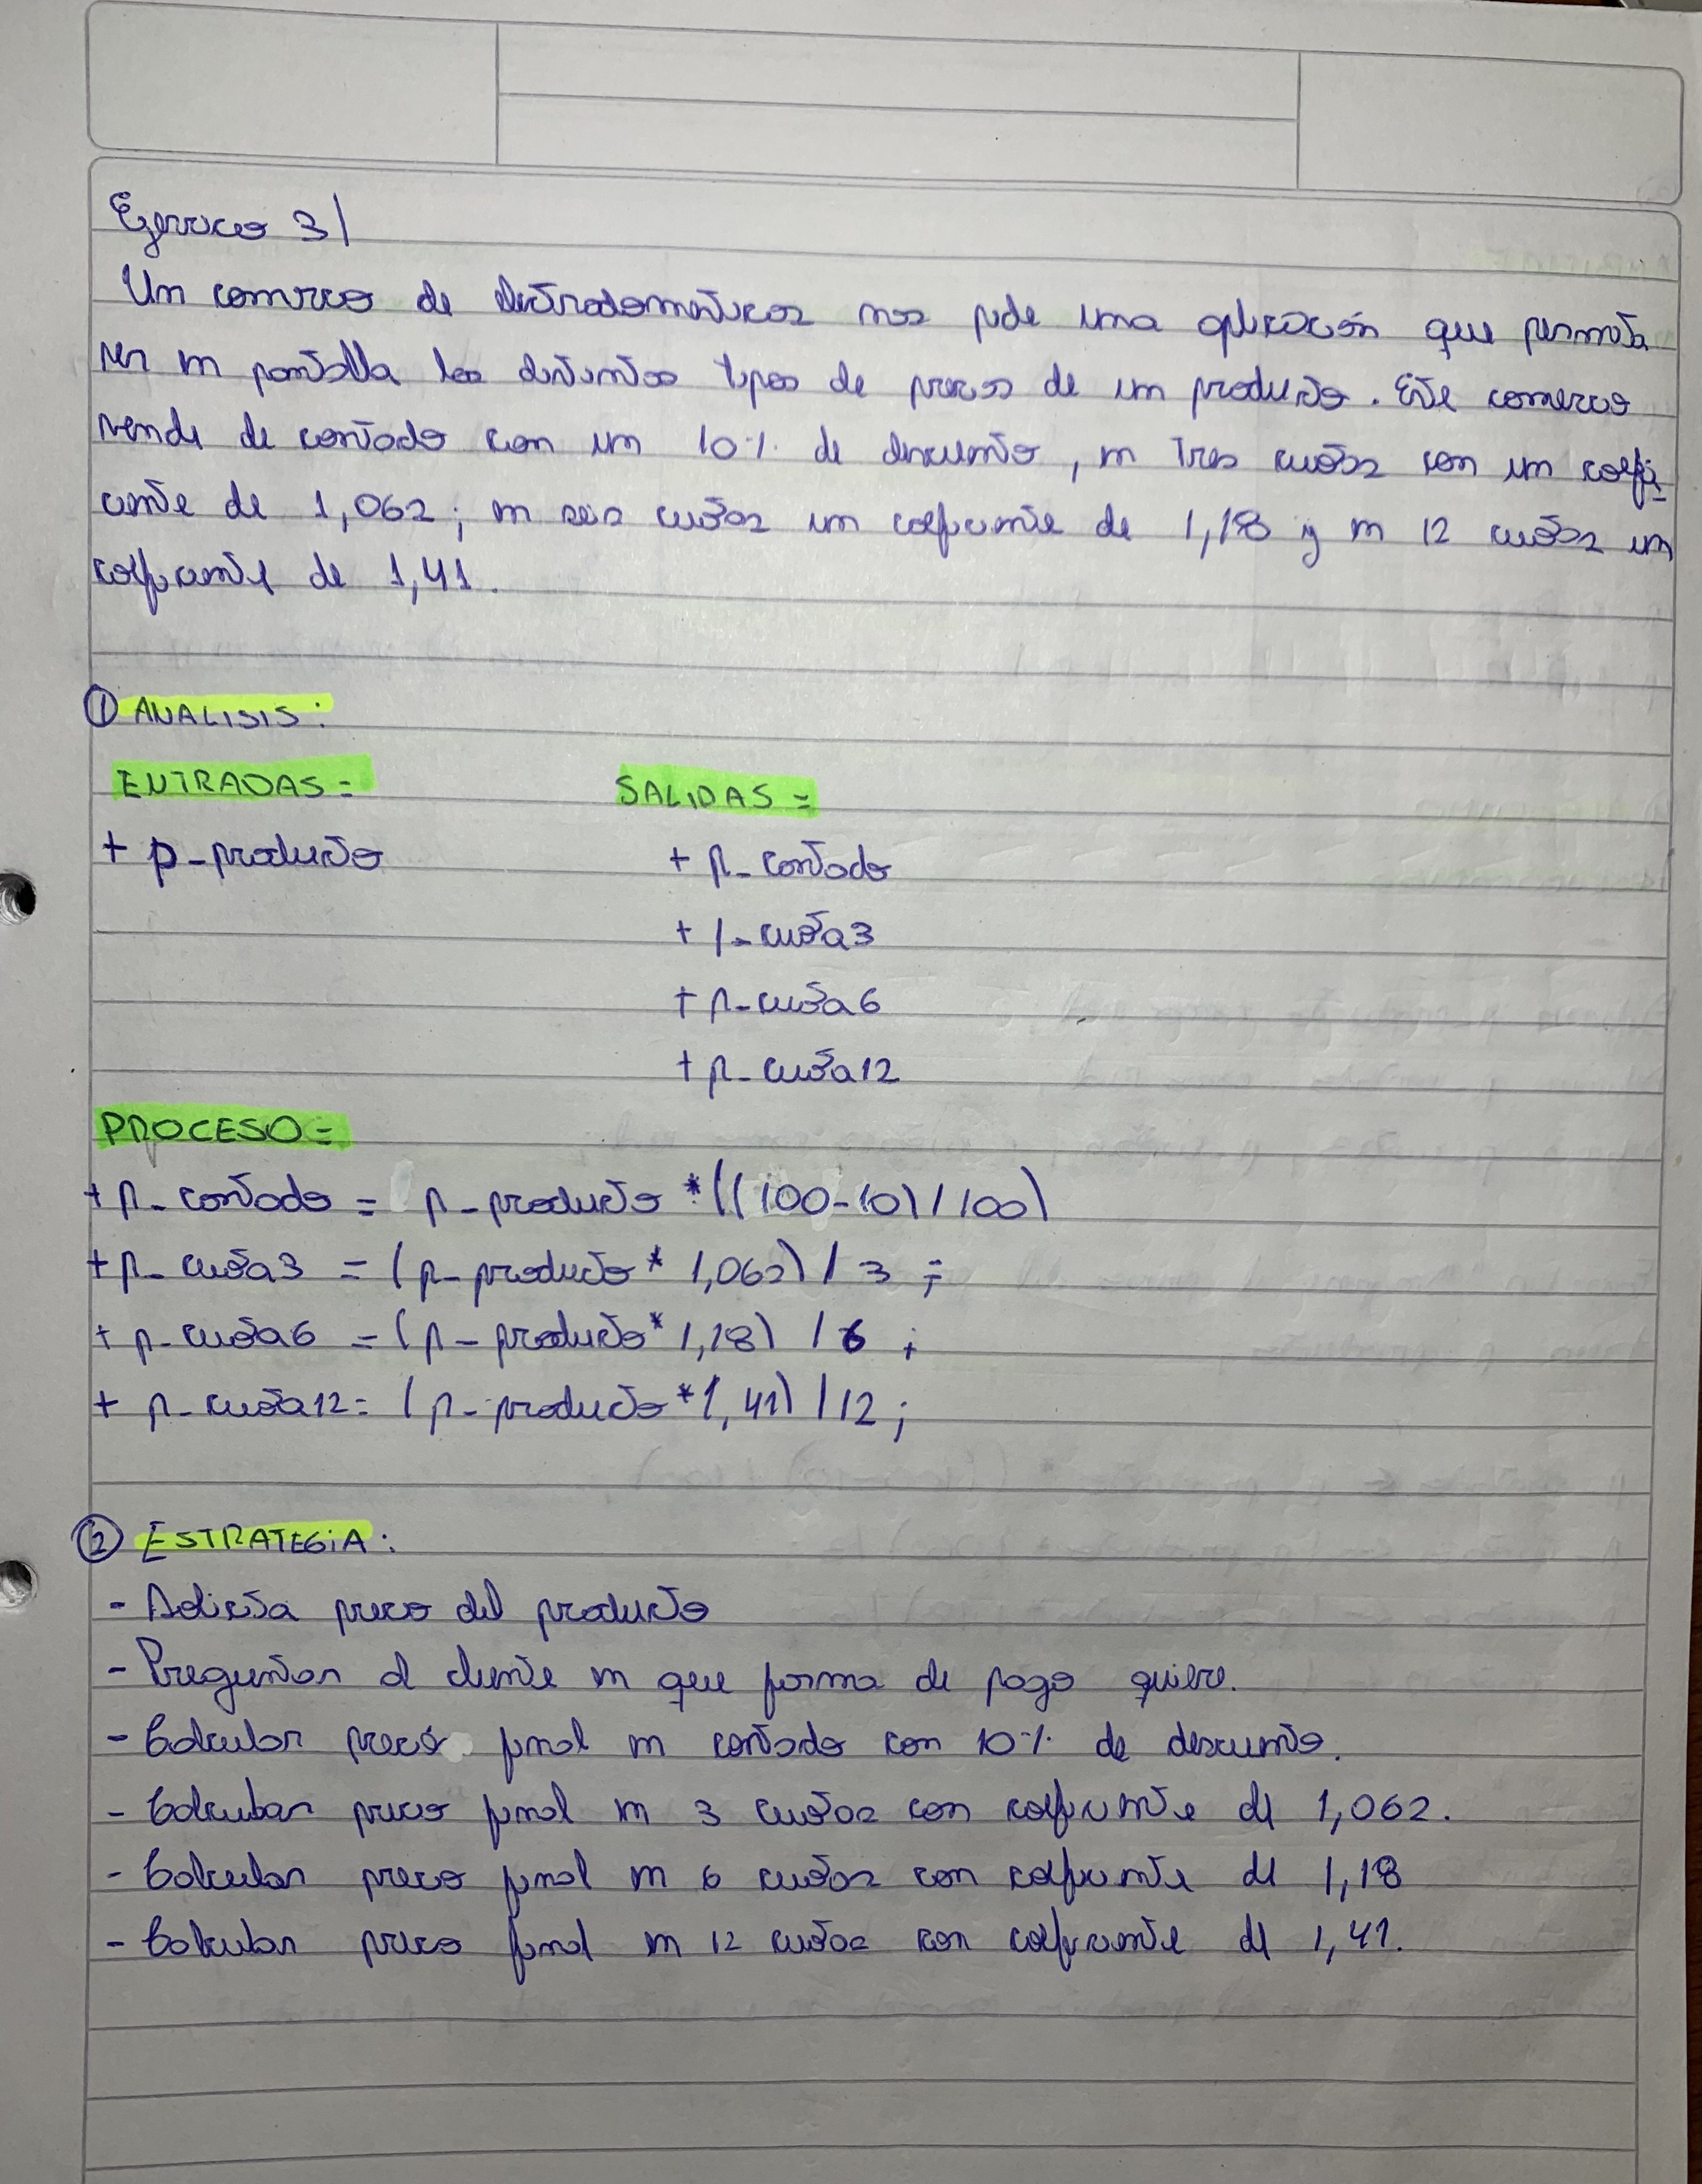 Ejercicio 3|
Un comercio de electrodomésticos nos pide una aplicación que permita
ver en pantalla los distintos tipos de precios de un producto. Este comercio
vende de contado con un 10% de descuento, en tres cuotas con un coefi-
ciente de 1,062; en seis cuotas un coeficiente de 1,18 y en 12 cuotas un
coeficiente de 1,41.
① ANALISIS:
ENTRADAS= SALIDAS=
+ p_producto + p_contado
+ p_cuota3
+ p_cuota6
+ p_cuota12
PROCESO=
+ p_contado = p_producto *((100-10)/100)
+ p_cuota3 = (p_producto * 1,062) / 3 ;
+ p_cuota6 = (p_producto * 1,18) / 6 ;
+ p_cuota12 = (p_producto * 1,41) / 12 ;
② ESTRATEGiA:
- Solicita precio del producto
- Preguntar al cliente en que forma de pago quiere.
- Calcular precio final en contado con 10% de descuento.
- Calcular precio final en 3 cuotas con coeficiente de 1,062.
- Calcular precio final en 6 cuotas con coeficiente de 1,18
- Calcular precio final en 12 cuotas con coeficiente de 1,41.